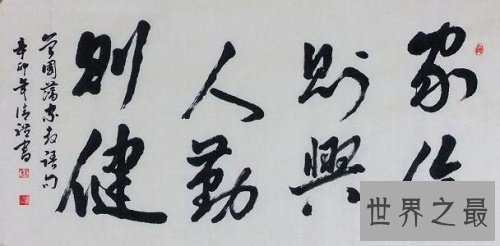 家
則興
人勤
則健
曾國藩家教語句
辛卯年書
世界之最